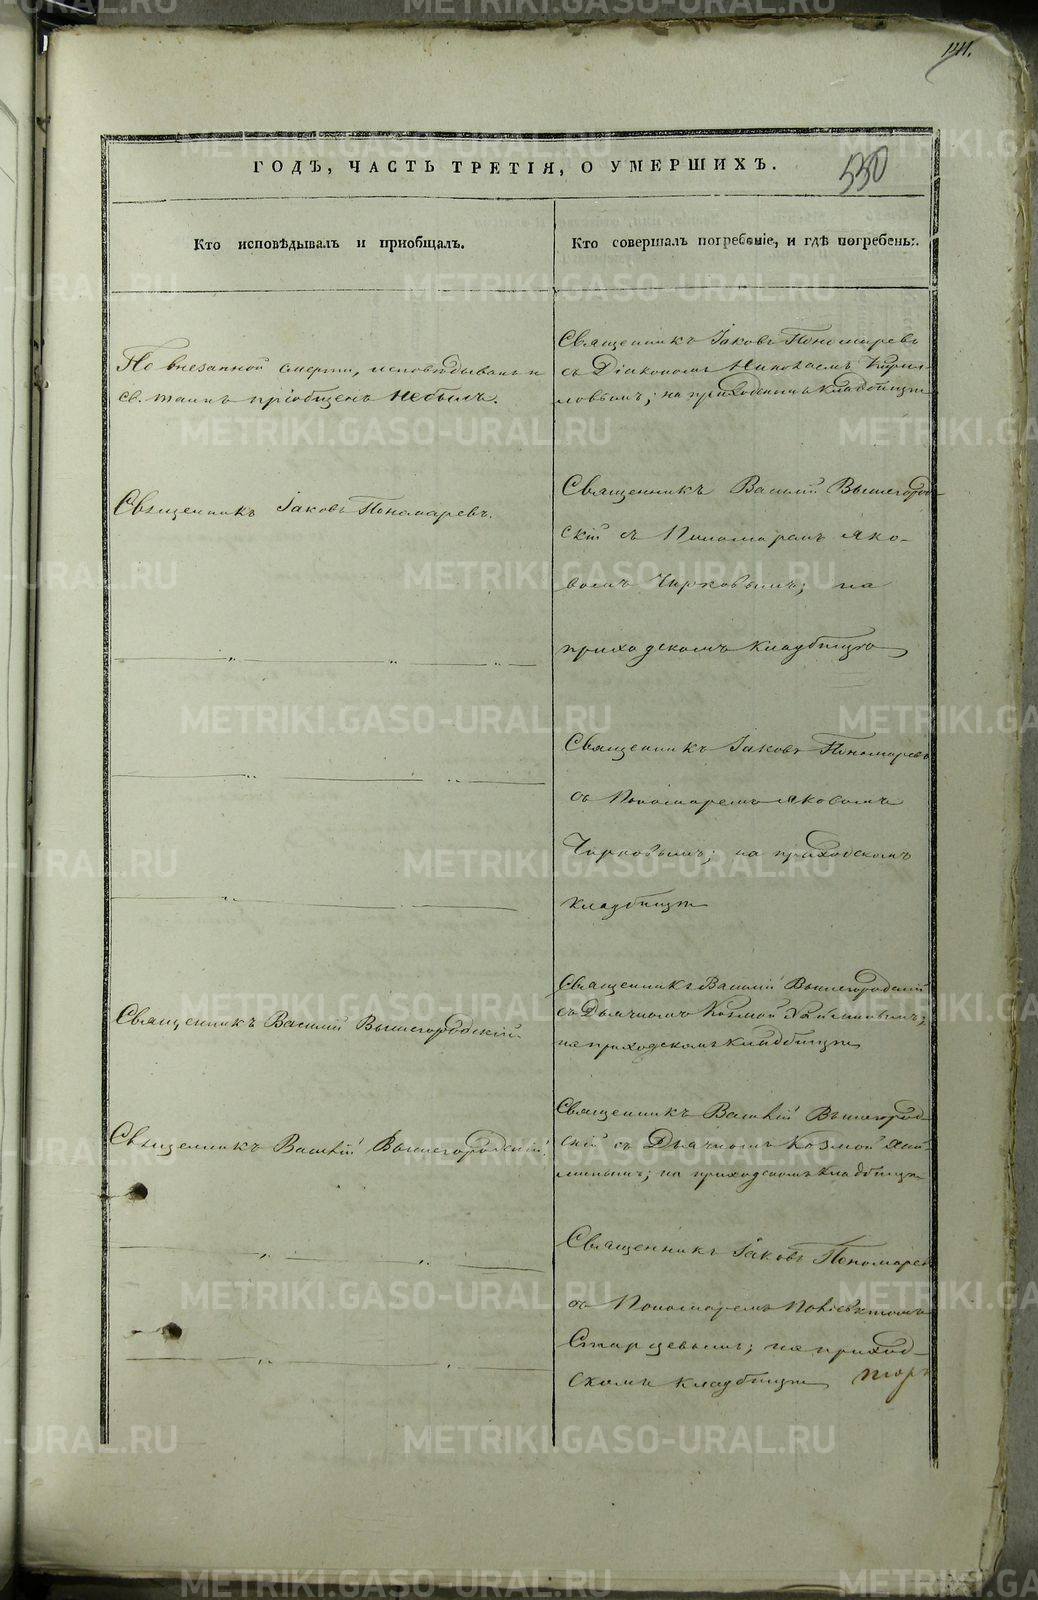 141.
ГОДЪ, ЧАСТЬ ТРЕТІЯ, О УМЕРШИХЪ.
550
Кто исповѣдывалъ и приобщалъ.
Кто совершалъ погребеніе, и гдѣ погребены.
По внезапной смерти, исповѣдыванъ и
св. таинъ пріобщенъ небылъ.
Священникъ Іаковъ Пономаревъ
съ Діакономъ Николаемъ Кирил-
ловымъ; на приходскомъ кладбищѣ
Священникъ Іаковъ Пономаревъ.
Священникъ Василій Вышегород-
скій съ Пономаремъ Яко-
вомъ Чирковымъ; на
приходскомъ кладбищѣ
Священникъ Іаковъ Пономаревъ
съ Пономаремъ Яковомъ
Чирковымъ; на приходскомъ
кладбищѣ
Священникъ Василій Вышегородскій
Священникъ Василій Вышегородскій
съ Дьячкомъ Козмой
на приходскомъ кладбищѣ
Священникъ Василій Вышегородскій
Священникъ Василій Вышегород-
скій съ Дьячкомъ Козмой
на приходскомъ кладбищѣ
Священникъ Іаковъ Пономаревъ
съ Пономаремъ Поліевктомъ
Старцевымъ; на приход-
скомъ кладбищѣ
METRIKI.GASO-URAL.RU